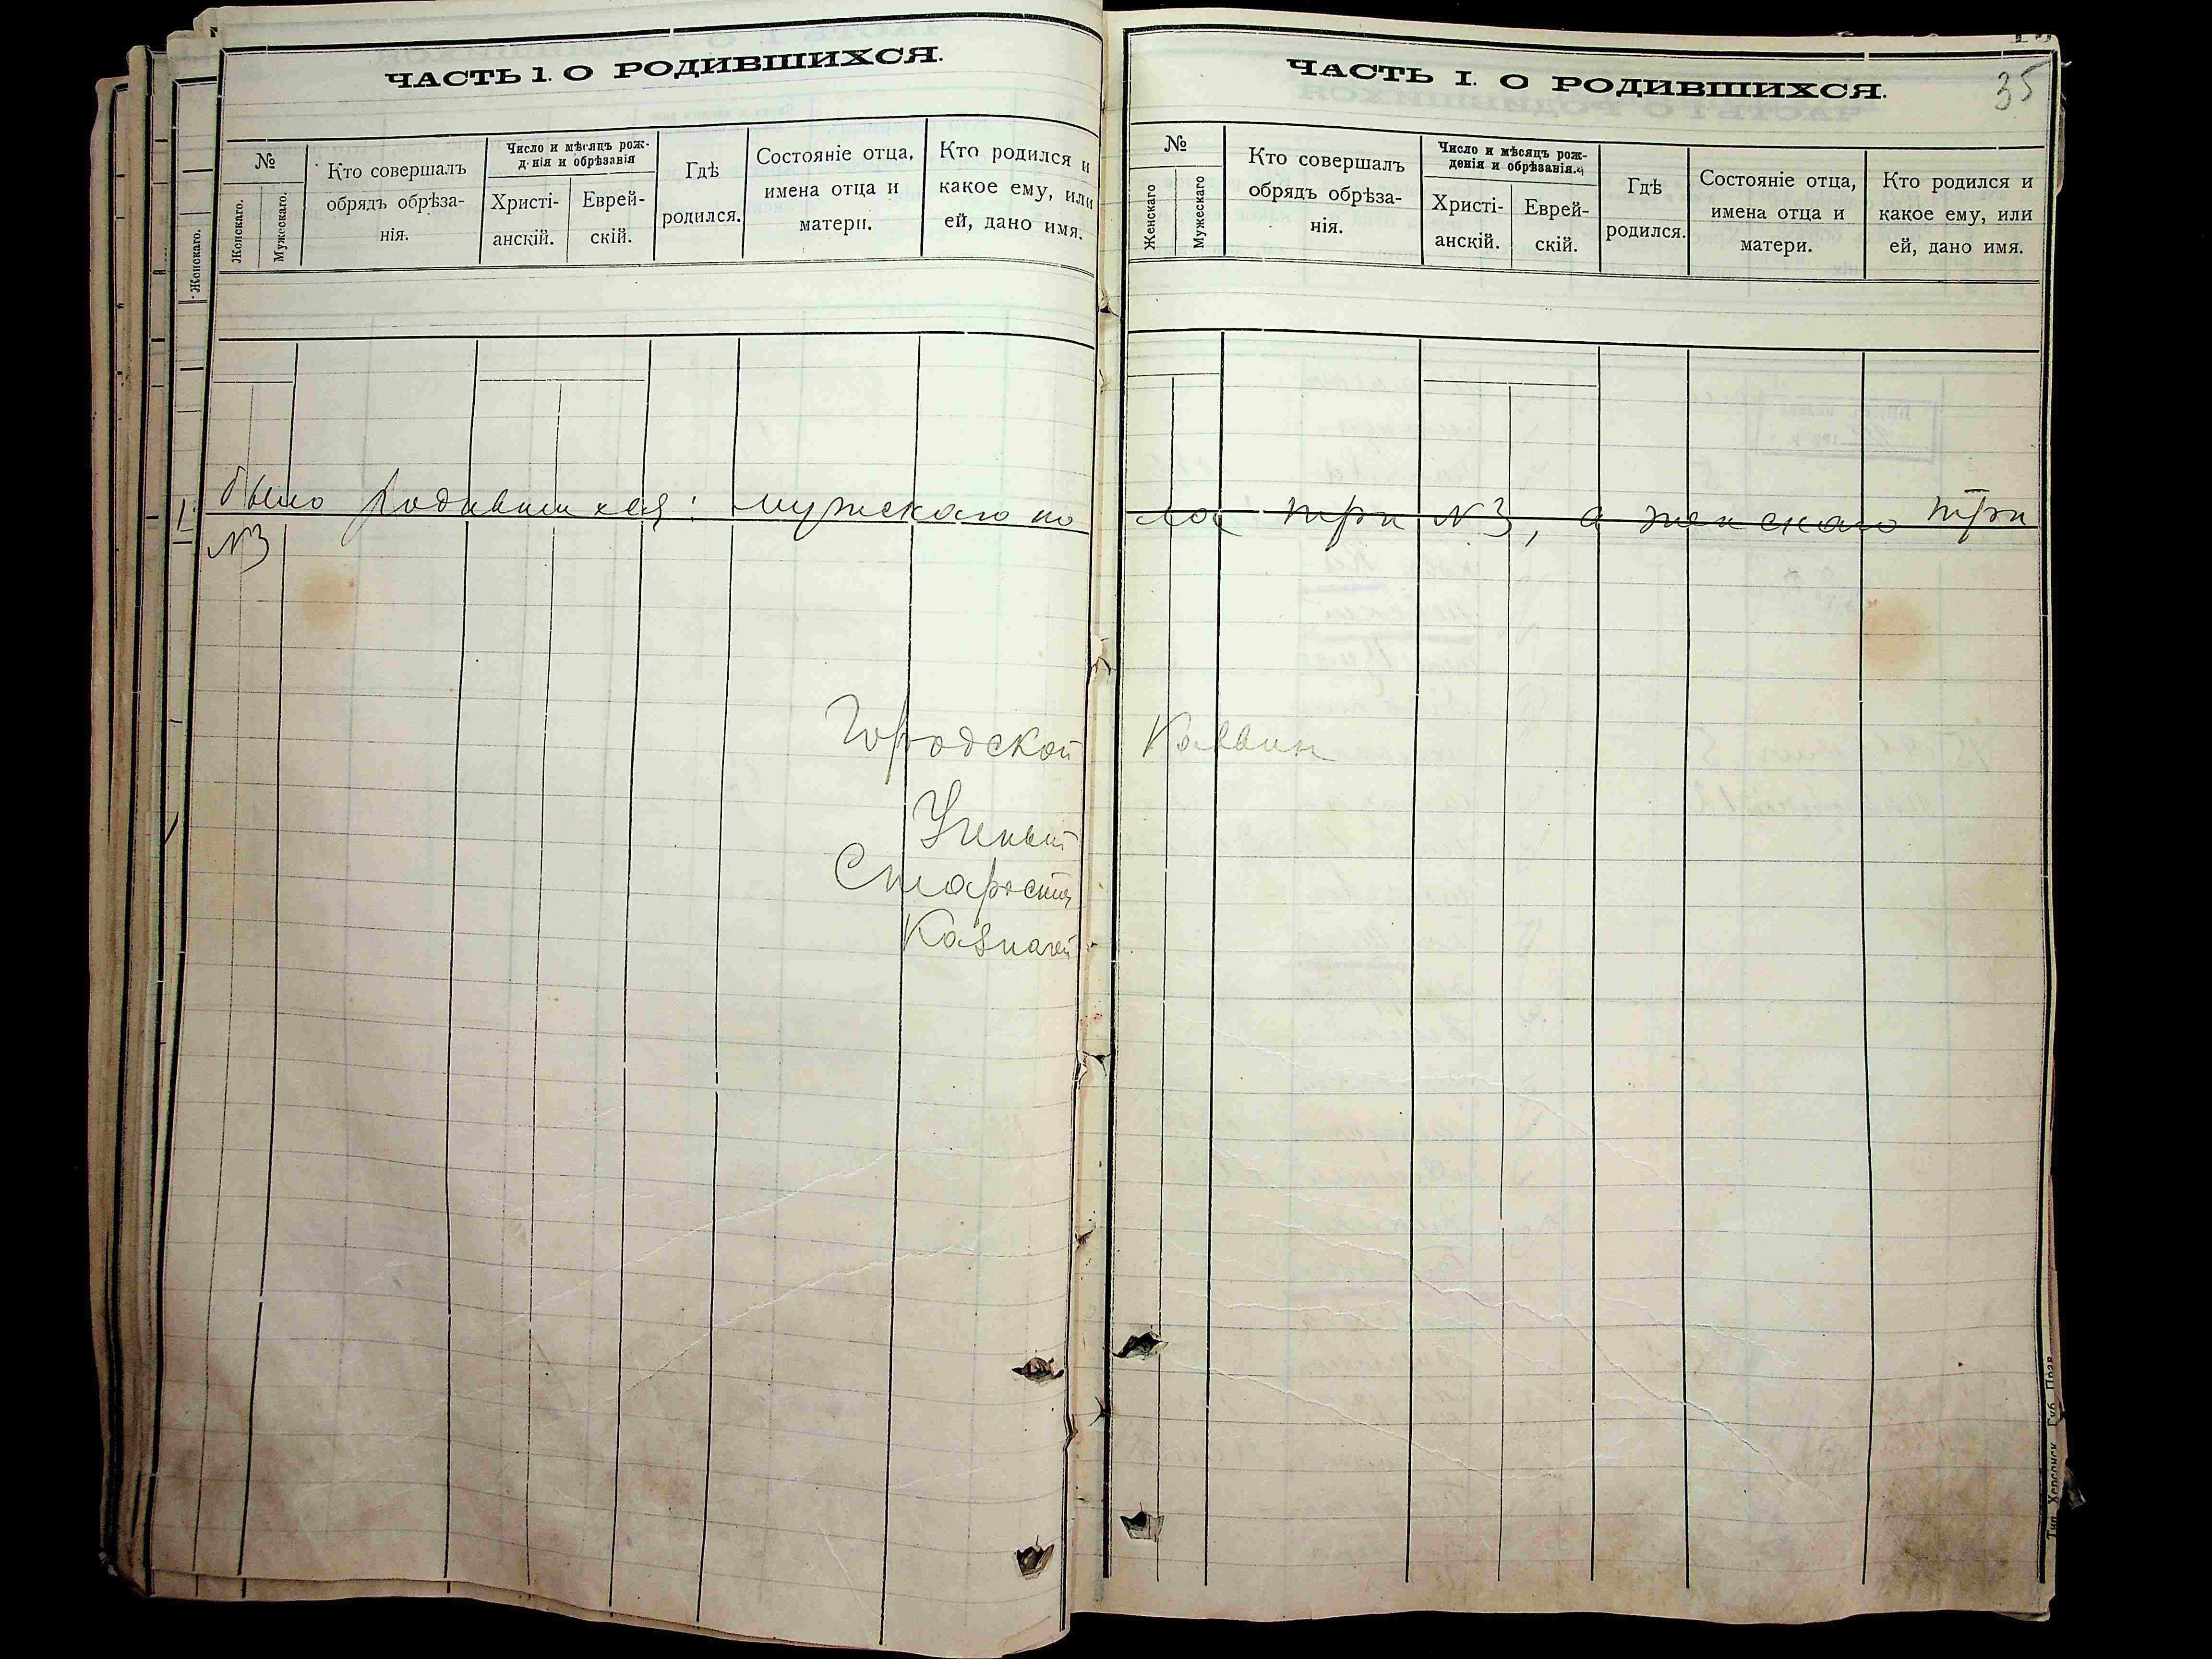 ЧАСТЬ 1. О РОДИВШИХСЯ.
№
Женскаго.
Мужескаго.
Кто совершалъ
обрядъ обрѣза-
нія.
Число и мѣсяцъ рож-
д нія и обрѣзанія
Христі-
анскій.
Еврей-
скій.
Гдѣ
родился.
Состояніе отца,
имена отца и
матери.
Кто родился и
какое ему, или
ей, дано имя.
было родившихся: мужскаго по
№3
Городской
Ученый
Староста
Казначей
Женскаго.
ЧАСТЬ I. О РОДИВШИХСЯ.
35
№
Женскаго
Мужескаго
Кто совершалъ
обрядъ обрѣза-
нія.
Число и мѣсяцъ рож-
денія и обрѣзанія.
Христі-
анскій.
Еврей-
скій.
Гдѣ
родился.
Состояніе отца,
имена отца и
матери.
Кто родился и
какое ему, или
ей, дано имя.
ла три №3, а женскаго три
Раввин
Тип. Херсонск. Губ. Прав.